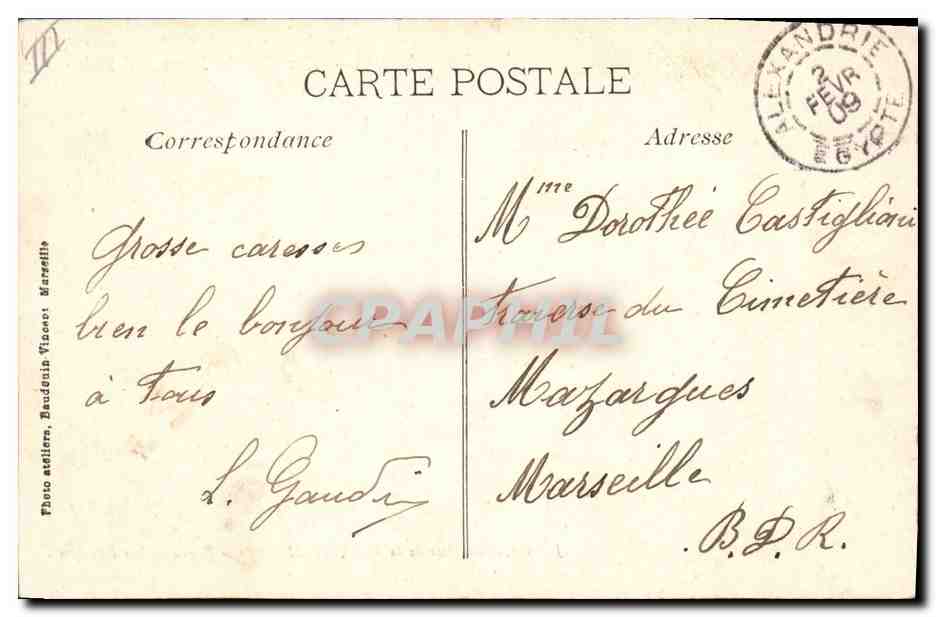 III
CARTE POSTALE
Correspondance
Adresse
ALEXANDRIE
2
FEVR
09
EGYPTE
Grosse caresses
bien le bonjour
à Tous
L. Gaudi
Mme Dorothée Castiglioni
Traverse du Cimetière
Mazargues
Marseille
B.D.R.
Photo ateliers, Baudouin-Vincent Marseille
CPAPHIL